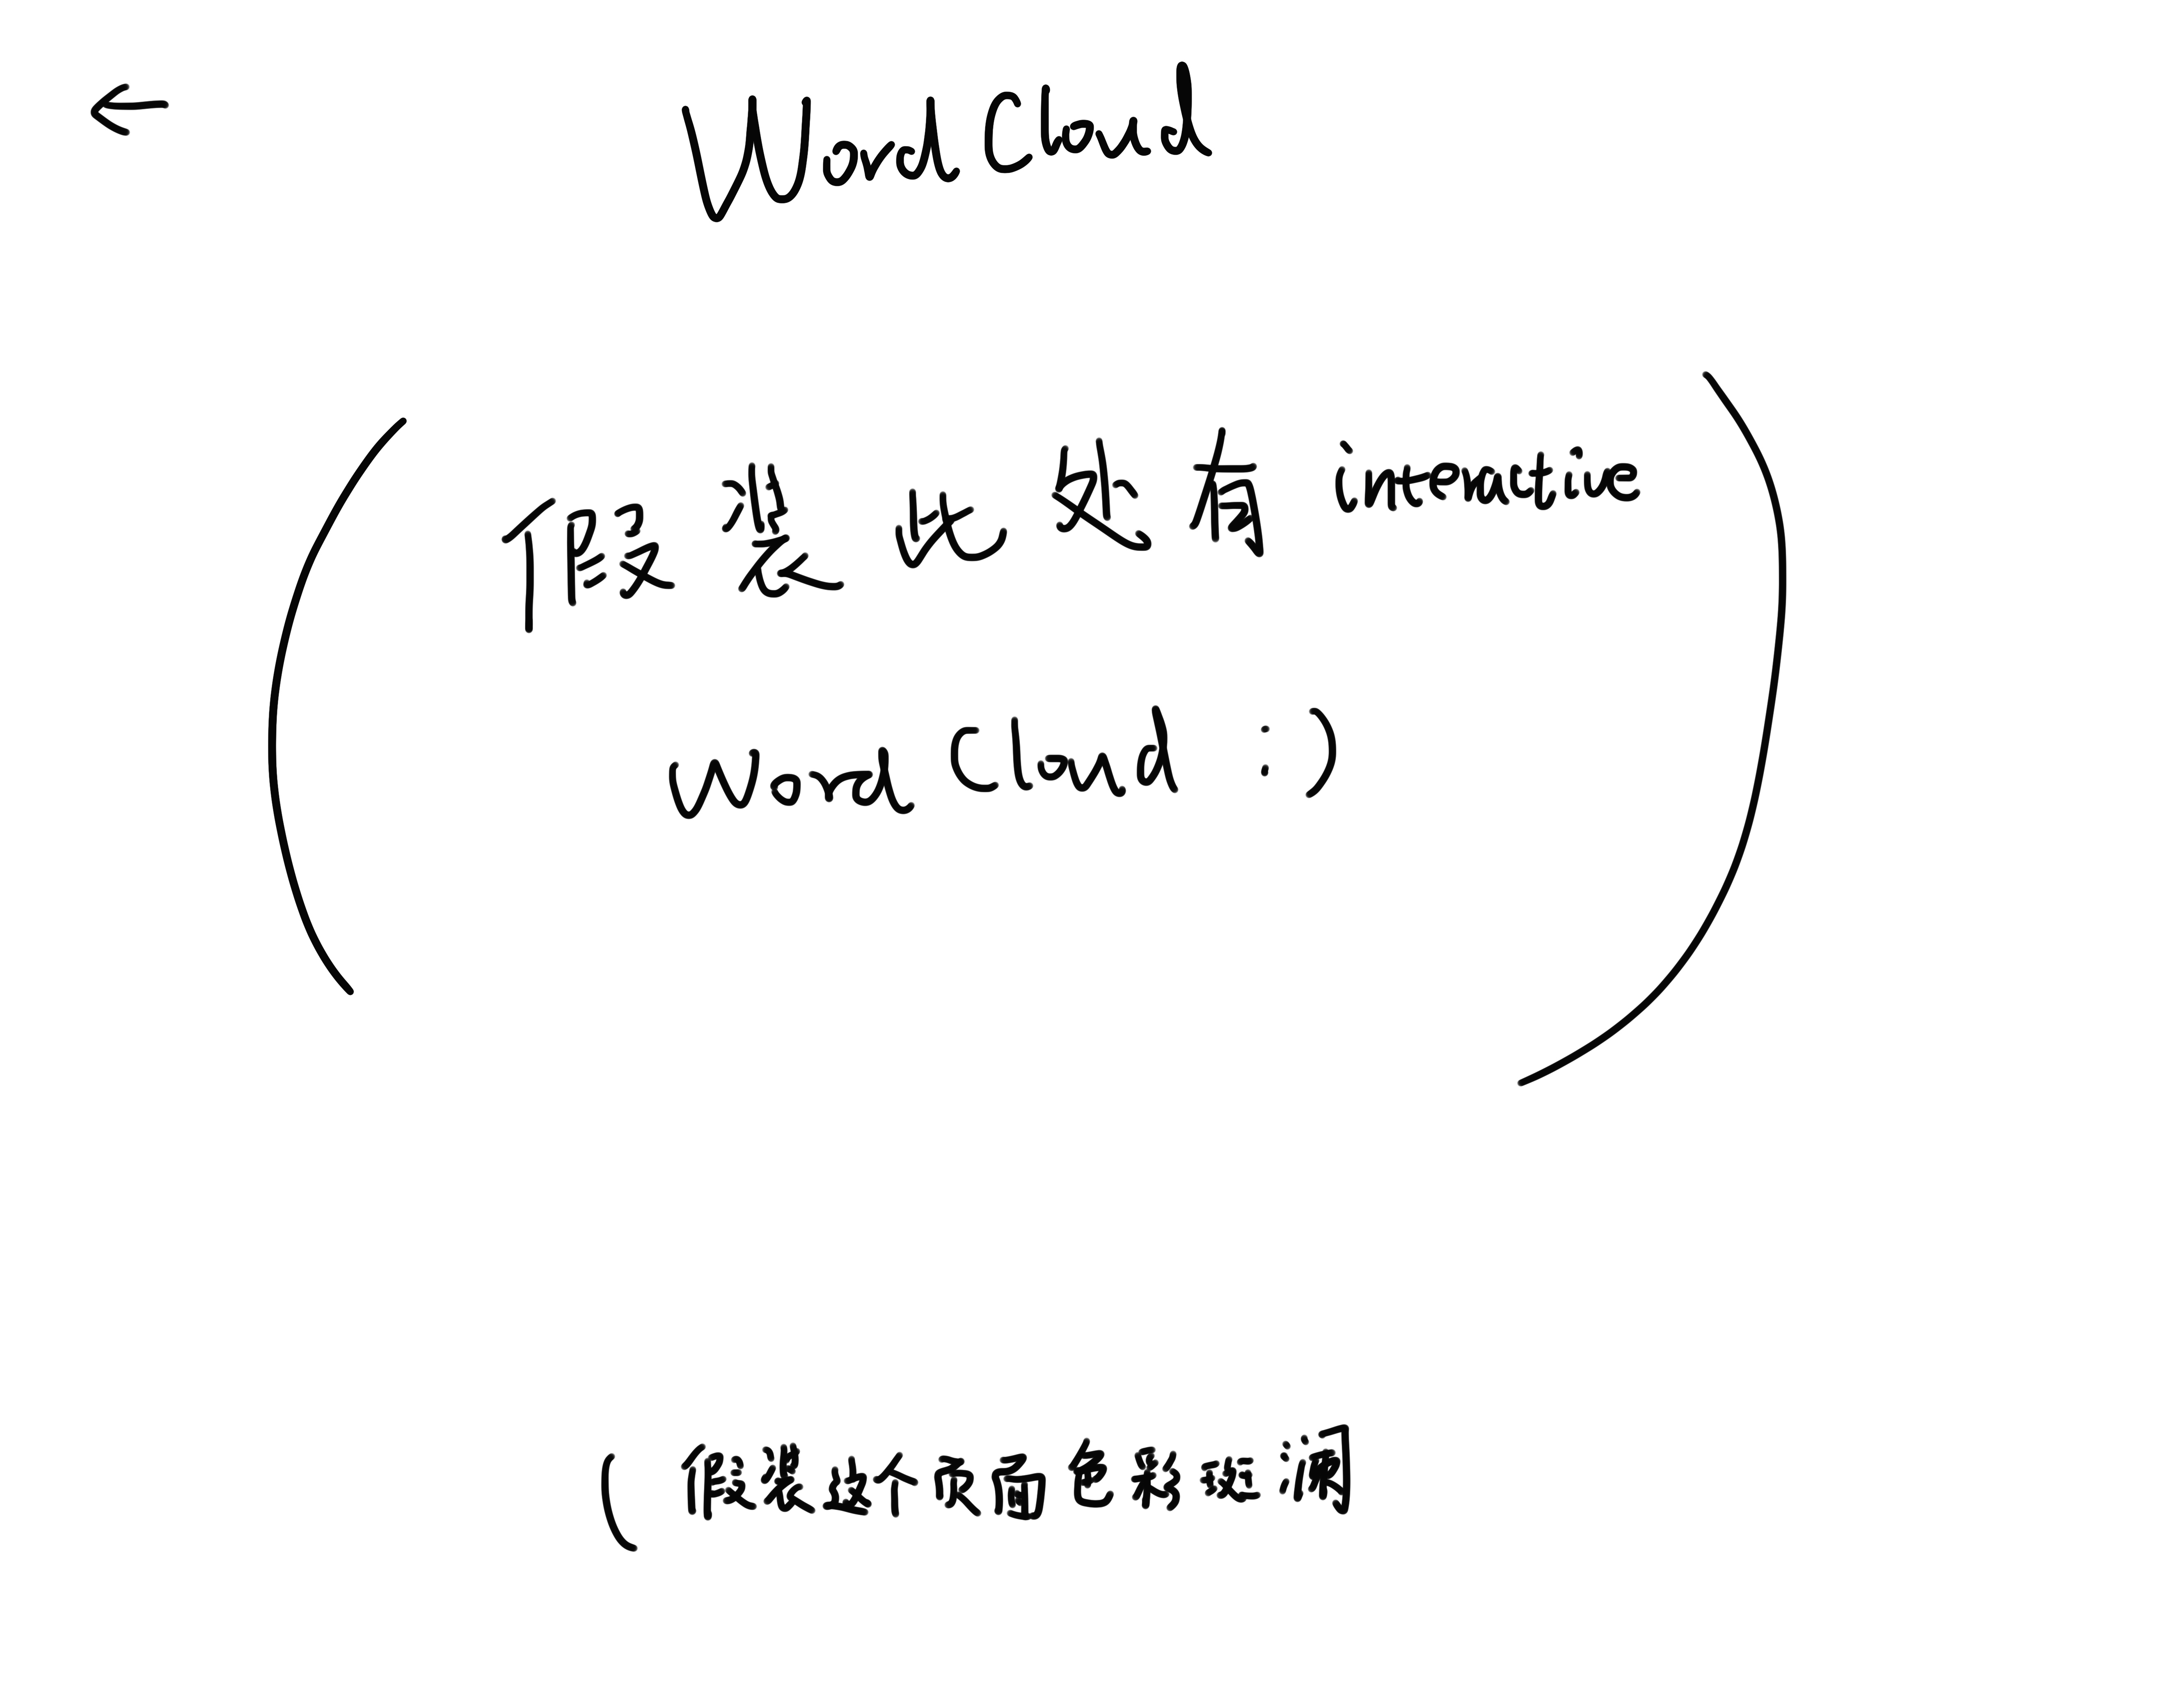 ←
Word Cloud
( 假装此处有 interactive )
word Cloud :)
( 假装这个页面色彩斑斓